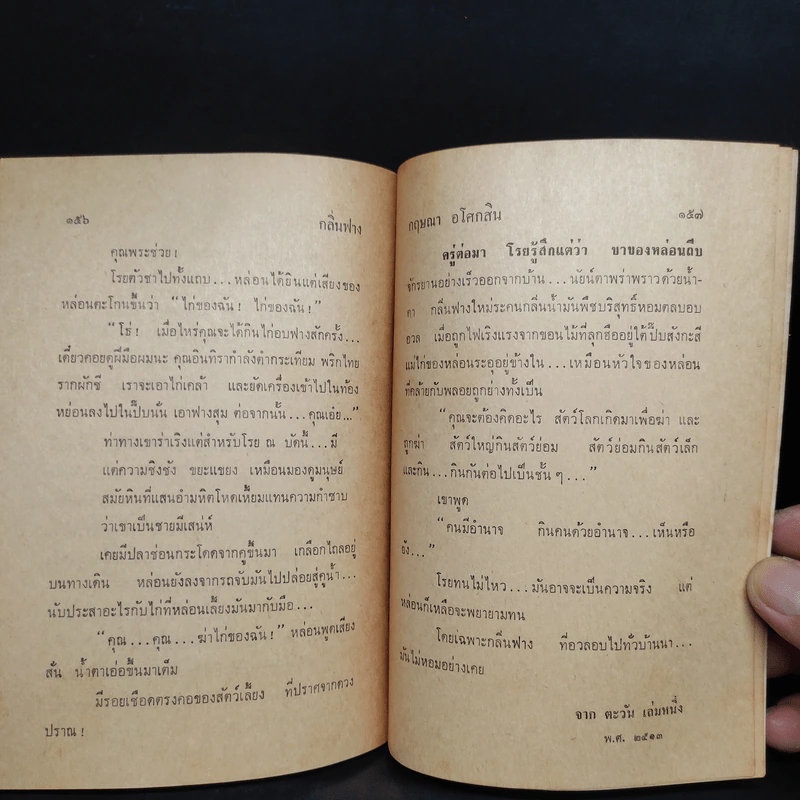 ๑๕๖
กลิ่นฟาง
คุณพระช่วย !
โรยตัวชาไปทั้งแถบ...หล่อนได้ยินแต่เสียงของ
หล่อนตะโกนขึ้นว่า “ไก่ของฉัน ! ไก่ของฉัน !”
“โธ่ ! เมื่อไหร่คุณจะได้กินไก่อบฟางสักครั้ง...
เดี๋ยวคอยดูฝีมือผมนะ คุณอินทิรากำลังตำกระเทียม พริกไทย
รากผักชี เราจะเอาไก่เคล้า และยัดเครื่องเข้าไปในท้อง
หย่อนลงไปในปี๊บนั่น เอาฟางสุม ต่อจากนั้น...คุณเอ๋ย...”
ท่าทางเขาร่าเริงแต่สำหรับโรย ณ บัดนี้...มี
แต่ความชิงชัง ขยะแขยง เหมือนมองดูมนุษย์
สมัยหินที่แสนอำมหิตโหดเหี้ยมแทนความกำซาบ
ว่าเขาเป็นชายมีเสน่ห์
เคยมีปลาช่อนกระโดดจากคูขึ้นมา เกลือกไถลอยู่
บนทางเดิน หล่อนยังลงจากรถจับมันไปปล่อยสู่คูน้ำ...
นับประสาอะไรกับไก่ที่หล่อนเลี้ยงมันมากับมือ...
“คุณ...คุณ...ฆ่าไก่ของฉัน !” หล่อนพูดเสียง
สั่น น้ำตาเอ่อขึ้นมาเต็ม
มีรอยเชือดตรงคอของสัตว์เลี้ยง ที่ปราศจากดวง
ปราณ !
กฤษณา อโศกสิน
๑๕๗
ครู่ต่อมา โรยรู้สึกแต่ว่า ขาของหล่อนถีบ
จักรยานอย่างเร็วออกจากบ้าน...นัยน์ตาพร่าพราวด้วยน้ำ-
ตา กลิ่นฟางใหม่ระคนกลิ่นน้ำมันพืชบริสุทธิ์หอมตลบอบ
อวล เมื่อถูกไฟเร่งแรงจากขอนไม้ที่ลุกฮืออยู่ใต้ปี๊บสังกะสี
แม่ไก่ของหล่อนระอุอยู่ข้างใน...เหมือนหัวใจของหล่อน
ที่คล้ายกับพลอยถูกย่างทั้งเป็น
“คุณจะต้องคิดอะไร สัตว์โลกเกิดมาเพื่อฆ่า และ
ถูกฆ่า สัตว์ใหญ่กินสัตว์ย่อม สัตว์ย่อมกินสัตว์เล็ก
และกิน...กินกันต่อไปเป็นชั้น ๆ...”
เขาพูด
“คนมีอำนาจ กินคนด้วยอำนาจ...เห็นหรือ
ยัง...”
โรยทนไม่ไหว...มันอาจจะเป็นความจริง แต่
หล่อนก็เหลือจะพยายามทน
โดยเฉพาะกลิ่นฟาง ที่อวลอบไปทั่วบ้านนา...
มันไม่หอมอย่างเคย
จาก ตะวัน เล่มหนึ่ง
พ.ศ. ๒๕๑๓